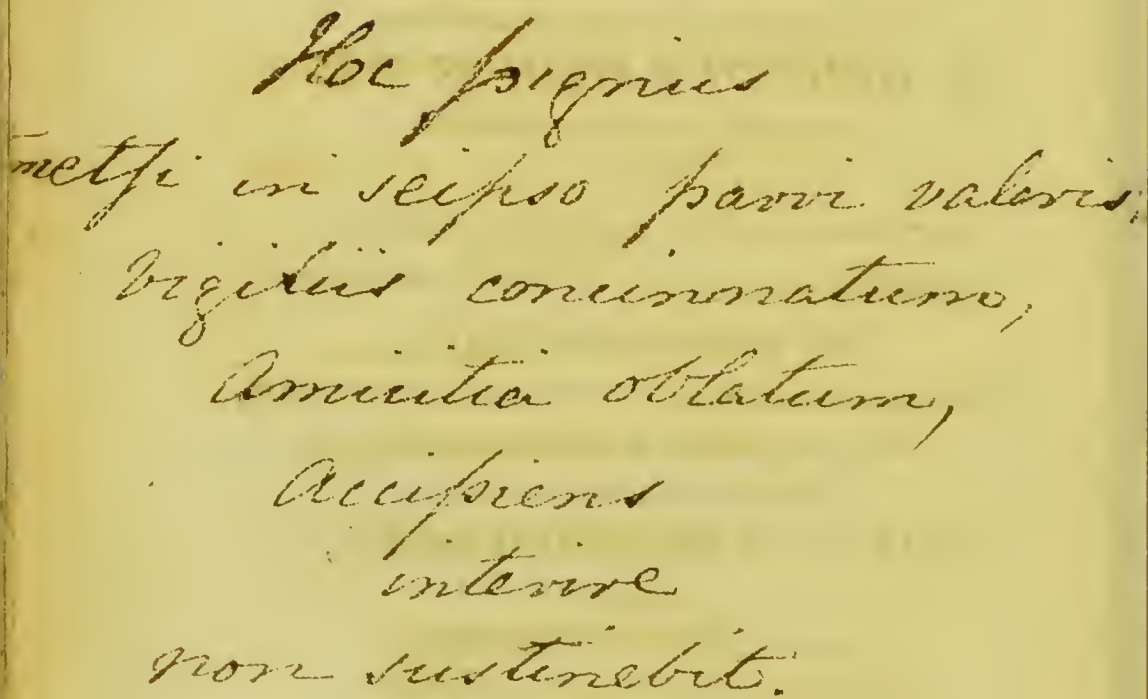 Hoc pignus
metsi in seipso parvi valoris,
vigiliis concinnatum,
Amicitia oblatum,
Accipiens
interire
non sustinebit.